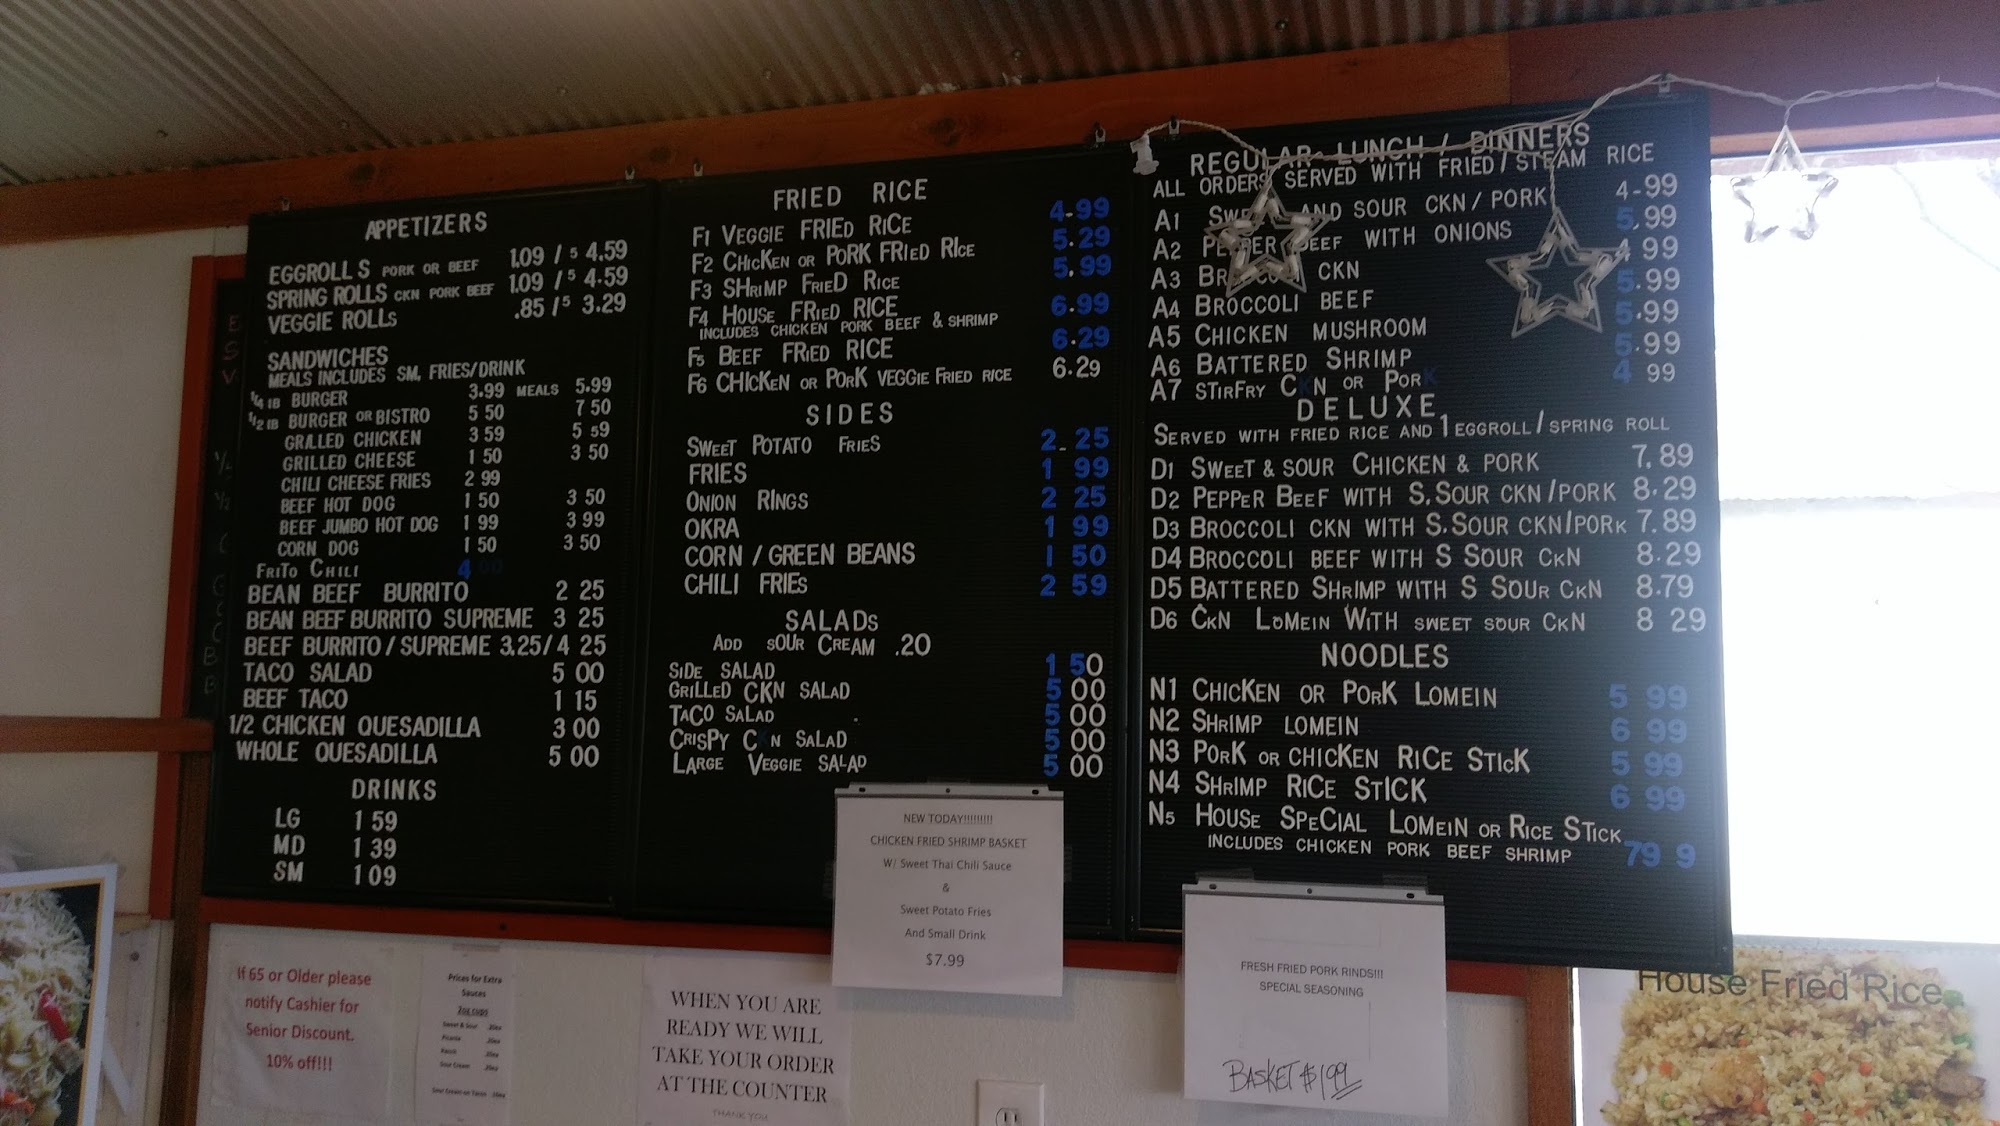 APPETIZERS
EGGROLLS PORK OR BEEF 1.09 / 5 4.59
SPRING ROLLS CKN PORK BEEF 1.09 / 5 4.59
VEGGIE ROLLS .85 / 5 3.29
SANDWICHES
MEALS INCLUDES SM, FRIES/DRINK
1/4 lB BURGER 3.99 MEALS 5.99
1/2 lB BURGER OR BISTRO 5 50 7 50
GRILLED CHICKEN 3 59 5 59
GRILLED CHEESE 1 50 3 50
CHILI CHEESE FRIES 2 99
BEEF HOT DOG 1 50 3 50
BEEF JUMBO HOT DOG 1 99 3 99
CORN DOG 1 50 3 50
FRITO CHILI 4 00
BEAN BEEF BURRITO 2 25
BEAN BEEF BURRITO SUPREME 3 25
BEEF BURRITO / SUPREME 3.25/ 4 25
TACO SALAD 5 00
BEEF TACO 1 15
1/2 CHICKEN QUESADILLA 3 00
WHOLE QUESADILLA 5 00
DRINKS
LG 1 59
MD 1 39
SM 1 09
FRIED RICE
F1 VEGGIE FRIED RICE 4-99
F2 CHICKEN OR PORK FRIED RICE 5.29
F3 SHRIMP FRIED RICE 5.99
F4 HOUSE FRIED RICE 6.99
INCLUDES CHICKEN PORK BEEF & SHRIMP
F5 BEEF FRIED RICE 6.29
F6 CHICKEN OR PORK VEGGIE FRIED RICE 6.29
SIDES
SWEET POTATO FRIES 2.25
FRIES 1 99
ONION RINGS 2 25
OKRA 1 99
CORN / GREEN BEANS 1 50
CHILI FRIES 2 59
SALADS
ADD SOUR CREAM .20
SIDE SALAD 1 50
GRILLED CKN SALAD 5 00
TACO SALAD 5 00
CRISPY CKN SALAD 5 00
LARGE VEGGIE SALAD 5 00
REGULAR LUNCH / DINNERS
ALL ORDERS SERVED WITH FRIED / STEAM RICE
A1 SWEET AND SOUR CKN / PORK 4-99
A2 PEPPER BEEF WITH ONIONS 5.99
A3 BROCCOLI CKN 4 99
A4 BROCCOLI BEEF 5.99
A5 CHICKEN MUSHROOM 5.99
A6 BATTERED SHRIMP 5.99
A7 STIRFRY CKN OR PORK 4 99
DELUXE
SERVED WITH FRIED RICE AND 1 EGGROLL / SPRING ROLL
D1 SWEET & SOUR CHICKEN & PORK 7.89
D2 PEPPER BEEF WITH S.SOUR CKN / PORK 8.29
D3 BROCCOLI CKN WITH S.SOUR CKN/PORK 7.89
D4 BROCCOLI BEEF WITH S SOUR CKN 8.29
D5 BATTERED SHRIMP WITH S SOUR CKN 8.79
D6 CKN LOMEIN WITH SWEET SOUR CKN 8 29
NOODLES
N1 CHICKEN OR PORK LOMEIN 5 99
N2 SHRIMP LOMEIN 6 99
N3 PORK OR CHICKEN RICE STICK 5 99
N4 SHRIMP RICE STICK 6 99
N5 HOUSE SPECIAL LOMEIN OR RICE STICK
INCLUDES CHICKEN PORK BEEF SHRIMP 79 9
NEW TODAY!!!!!!!!!
CHICKEN FRIED SHRIMP BASKET
W/ Sweet Thai Chili Sauce
&
Sweet Potato Fries
And Small Drink
$7.99
FRESH FRIED PORK RINDS!!!
SPECIAL SEASONING
BASKET $1.99
If 65 or Older please
notify Cashier for
Senior Discount.
10% off!!!
Prices for Extra
Sauces
2oz cups
Sweet & Sour
Picante
Ranch
Sour Cream
Sour Cream on Tacos
WHEN YOU ARE
READY WE WILL
TAKE YOUR ORDER
AT THE COUNTER
THANK YOU
House Fried Rice